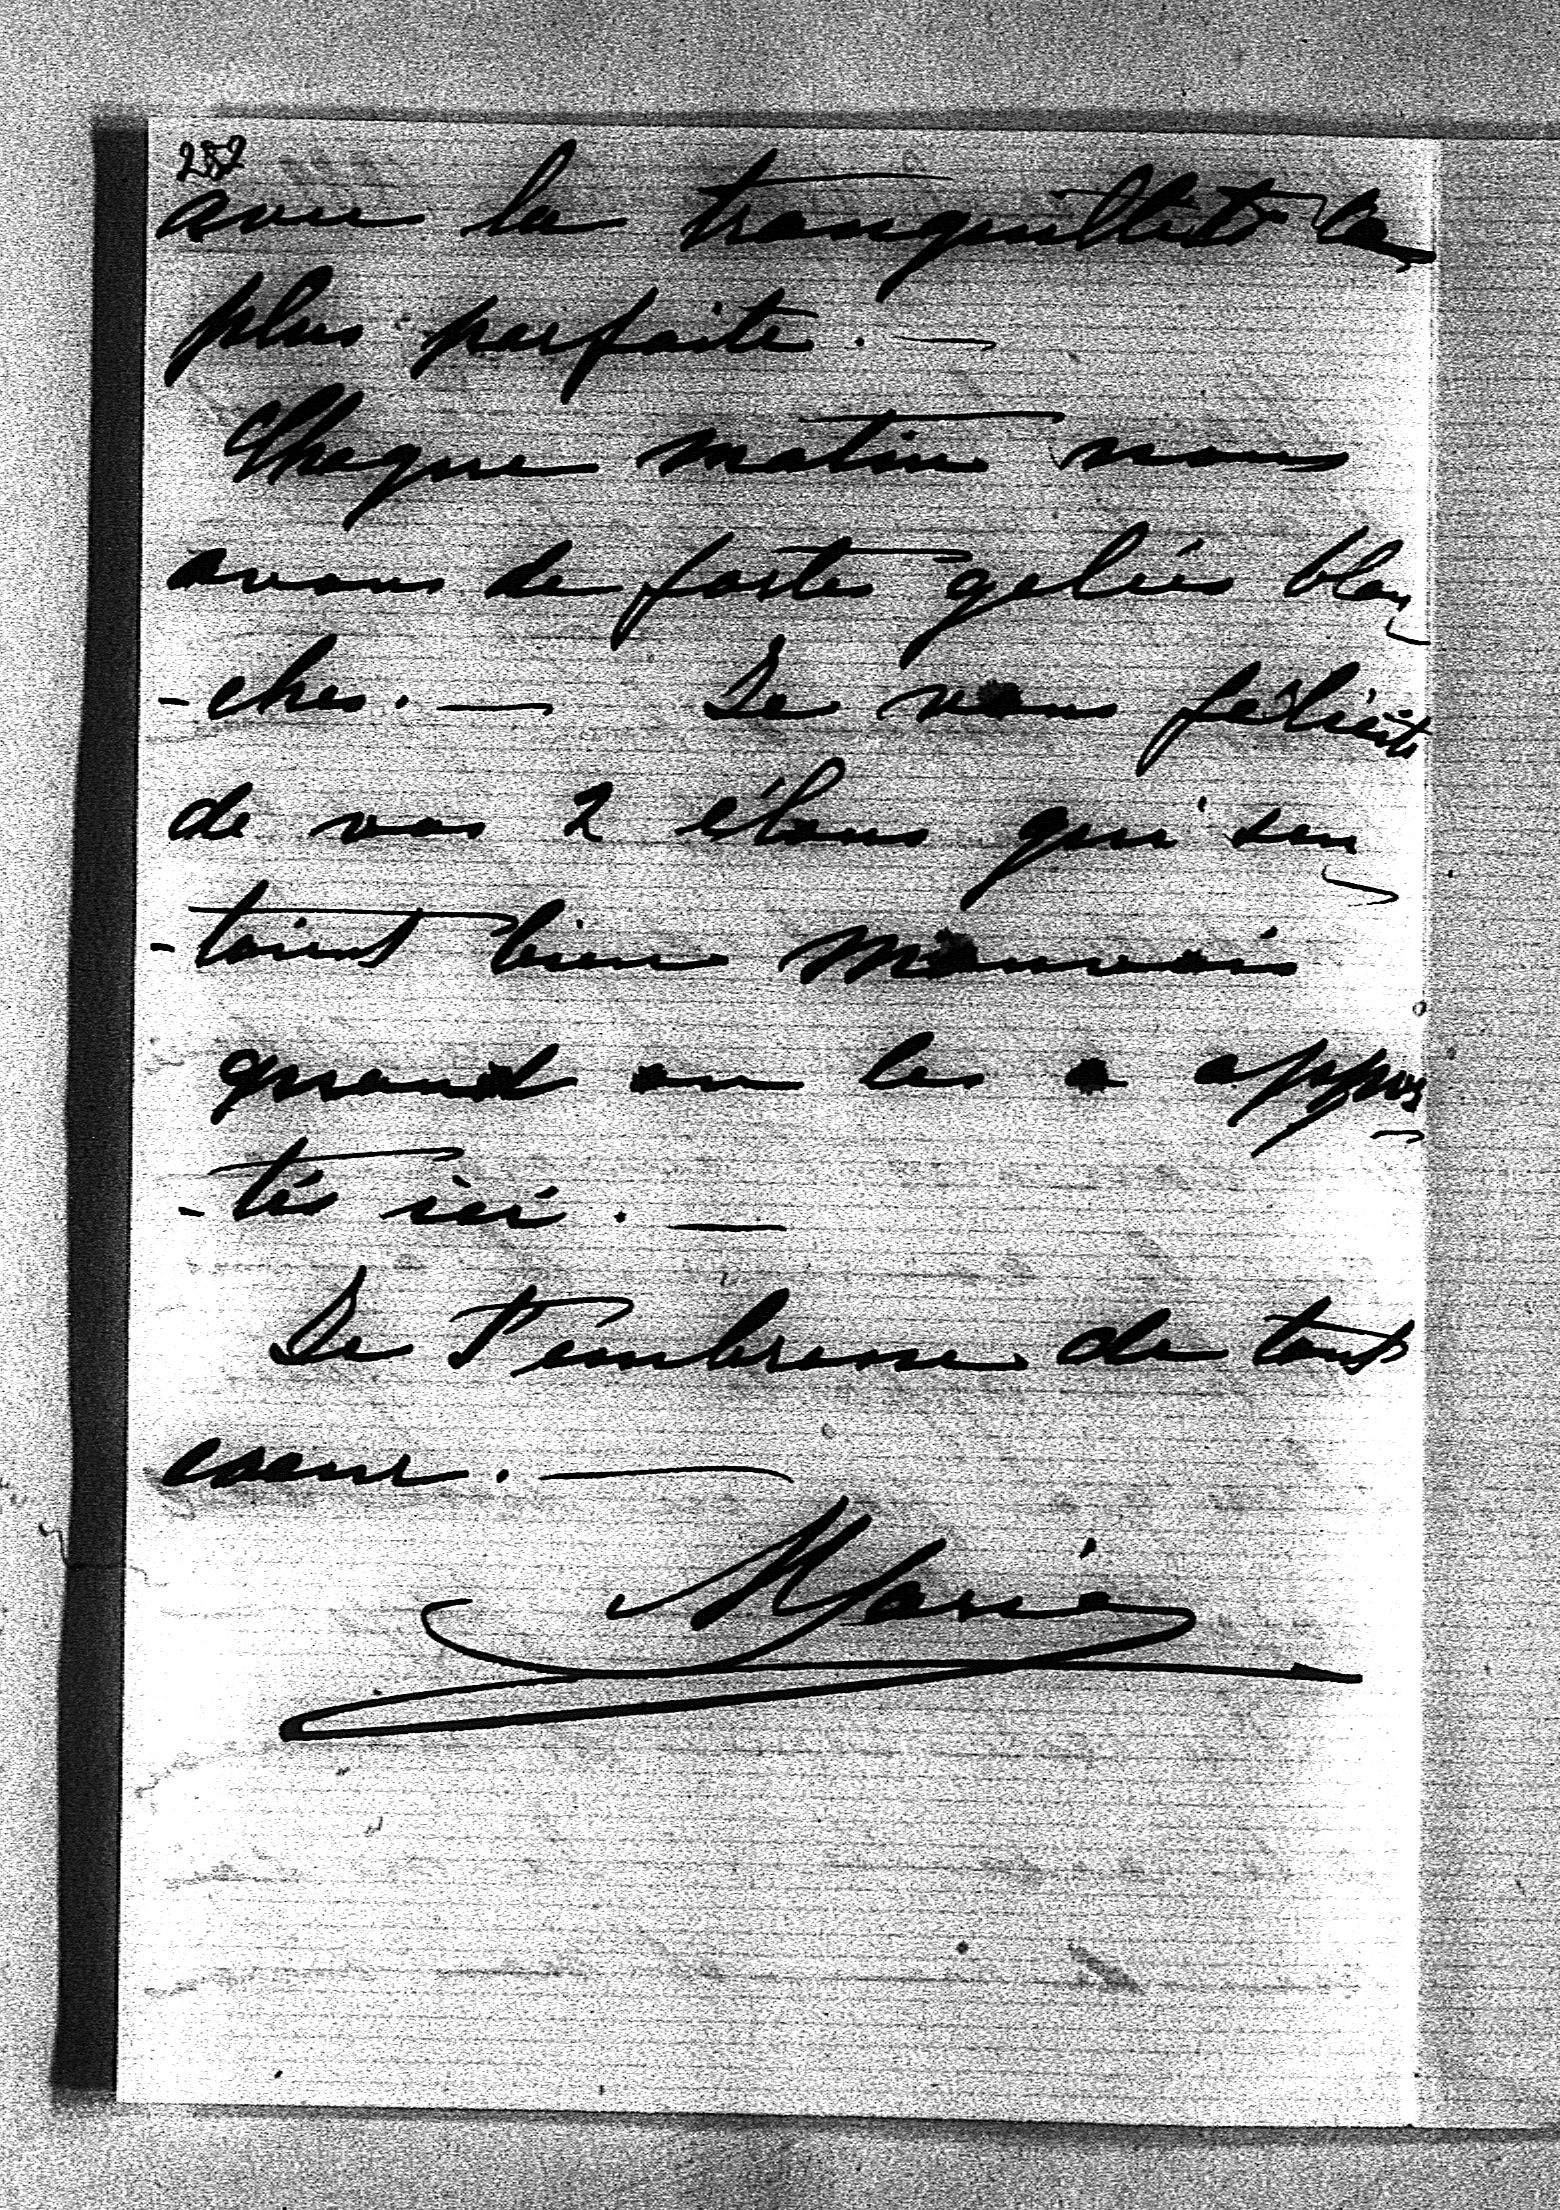 252
avec la tranquillité la
plus parfaite. —
Chaque matin nous
avons de fortes gelées blan
-ches. — Je vous félicite
de vos 2 élans qui sen
-taient bien mauvais
quand on les a appor
-tés ici. —
Je t'embrasse de tout
coeur. —
Marie